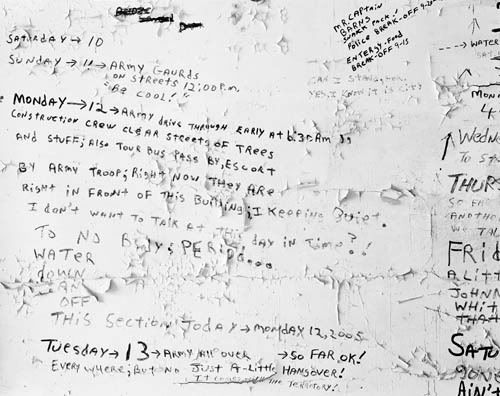 SATURDAY → 10
SUNDAY → 11 → ARMY GAURDS
ON STREETS 12:00 P.M.
"BE COOL!"
MONDAY → 12 → ARMY DRIVE THROUGH EARLY AT 6:30AM
CONSTRUCTION CREW CLEAR STREETS OF TREES
AND STUFF; ALSO TOUR BUS PASS BY, ESCORT
BY ARMY TROOP; RIGHT NOW THEY ARE
RIGHT IN FRONT OF THIS BUILDING; I KEEPING QUIET.
I DON'T WANT TO TALK AT THIS DAY IN TIME?!
TO NO BODY; PERIOD...
WATER
DOWN
AN
OFF
THIS SECTION TODAY → MONDAY 12, 2005
TUESDAY → 13 → ARMY ALL OVER → SO FAR OK!
EVERYWHERE; BUT NO JUST A-LITTLE HANGOVER!
IT COMES THE TERRITORY!
MR. CAPTAIN
BARNS
SNACK PACK!
POLICE BREAK-OFF
ENTERGY-FOOD
BREAK-OFF 9-13
CAN I STAND
YES, I KNOW IT IS
WATER
MON
4
WEDN
TO
THURS
SO
ANOTH
WE TAL
FRID
A LITT
JOHNN
WHIT
THAT
SATU
AIN'T